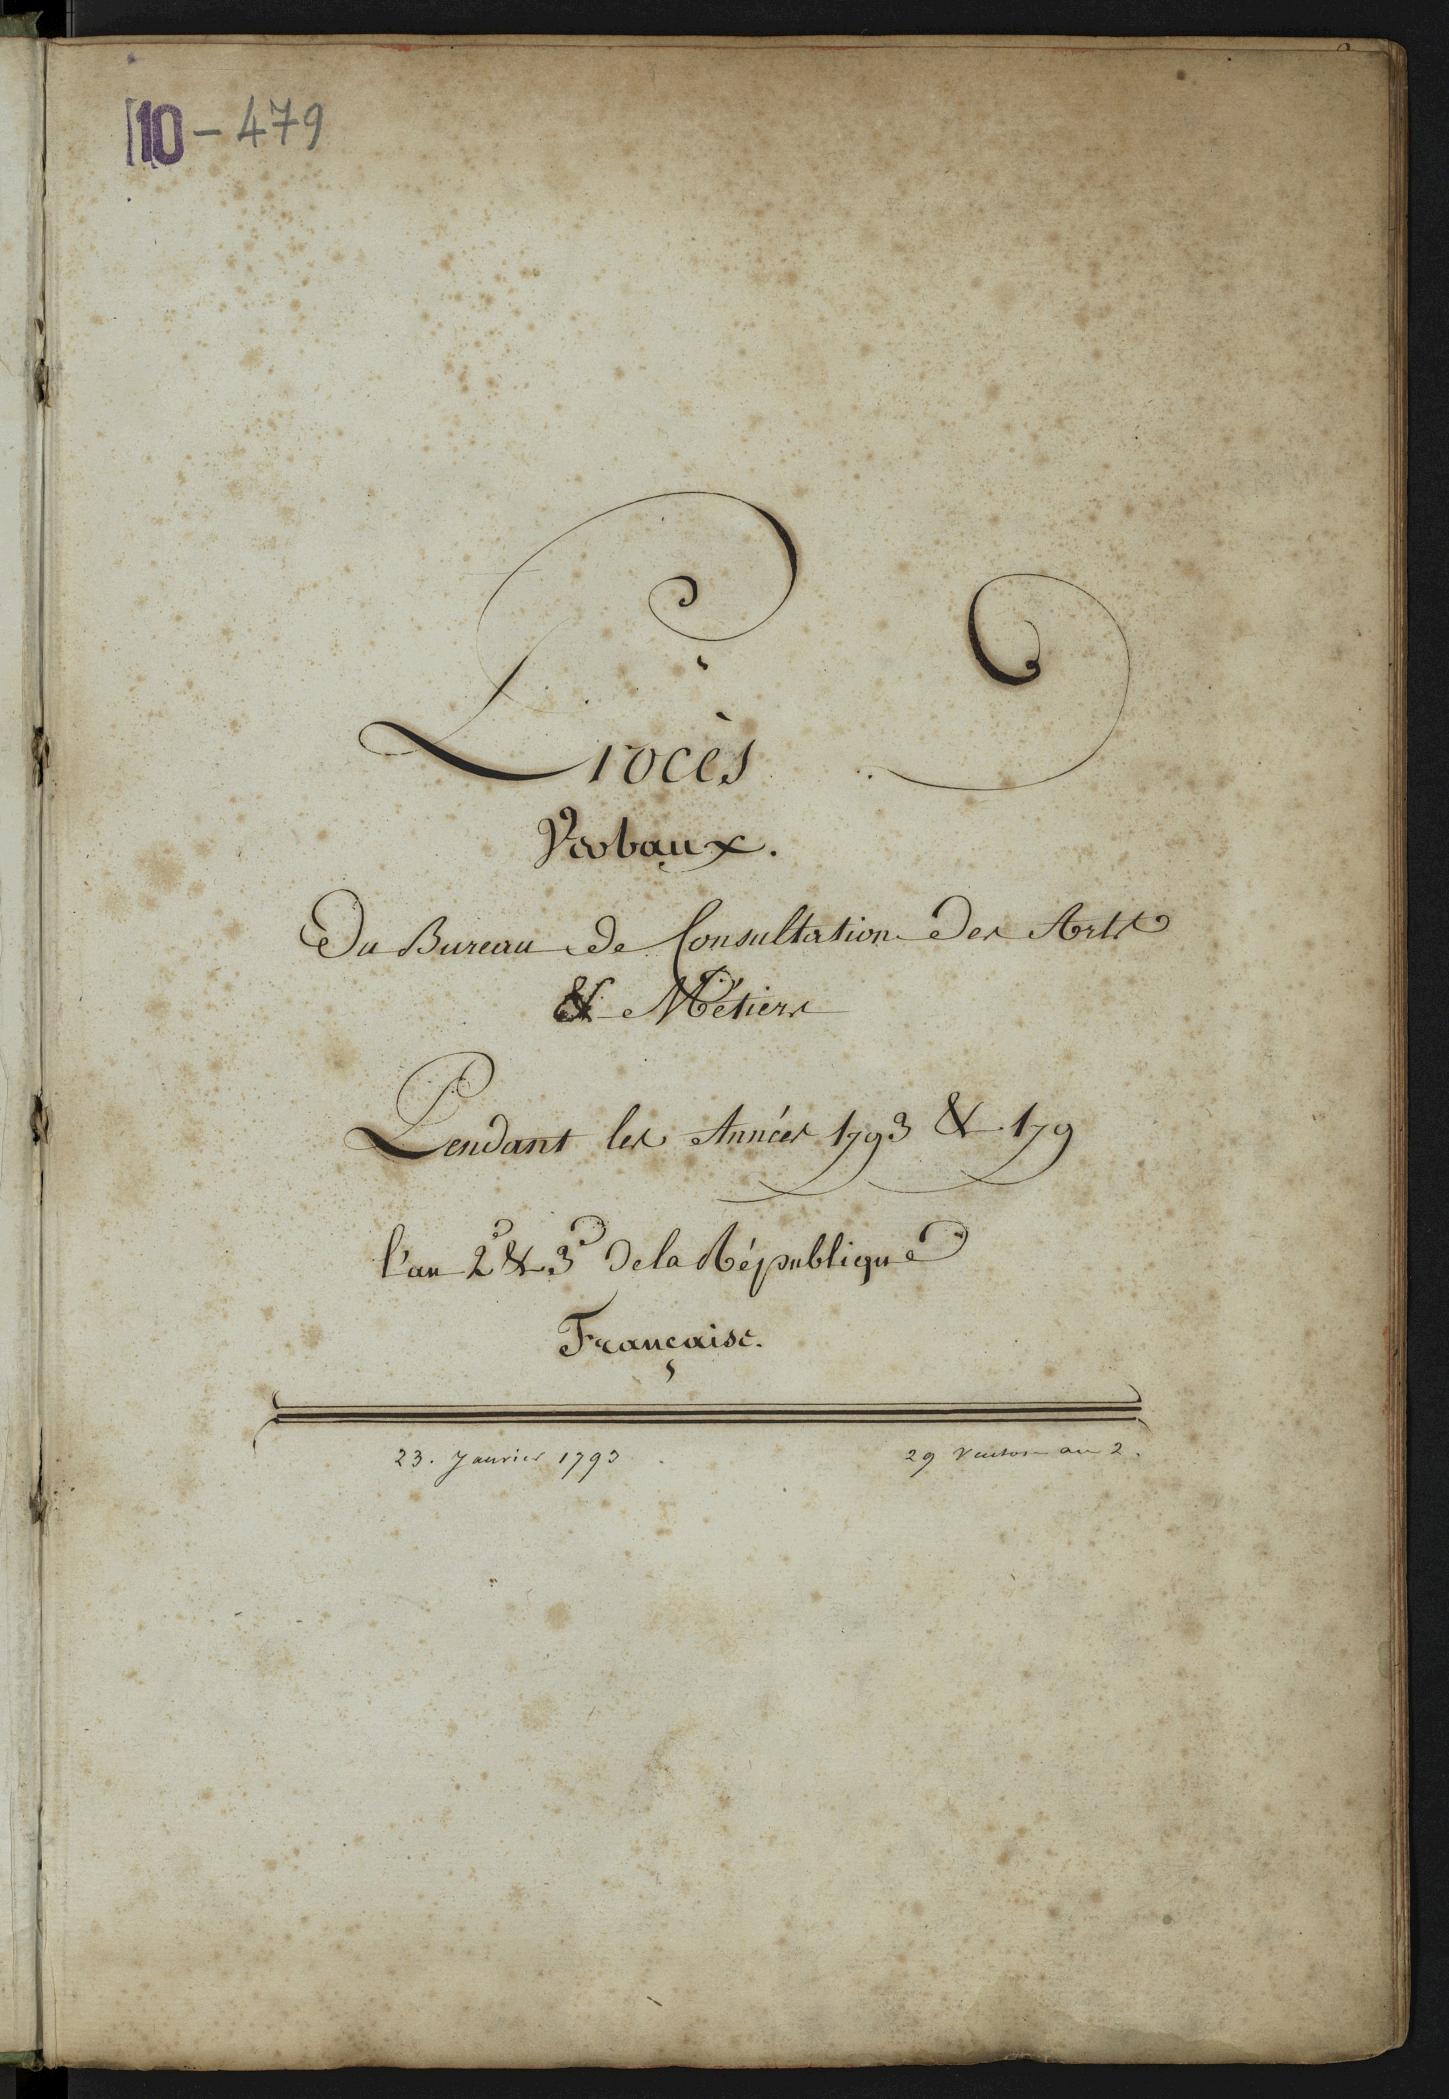 10 - 479
Procès
Verbaux.
Du Bureau de Consultation des Arts
& Métiers
Pendant les Années 1793 & 179
l'an 2e & 3e de la République
Française.
23. Janvier 1793
29 Ventose an 2.